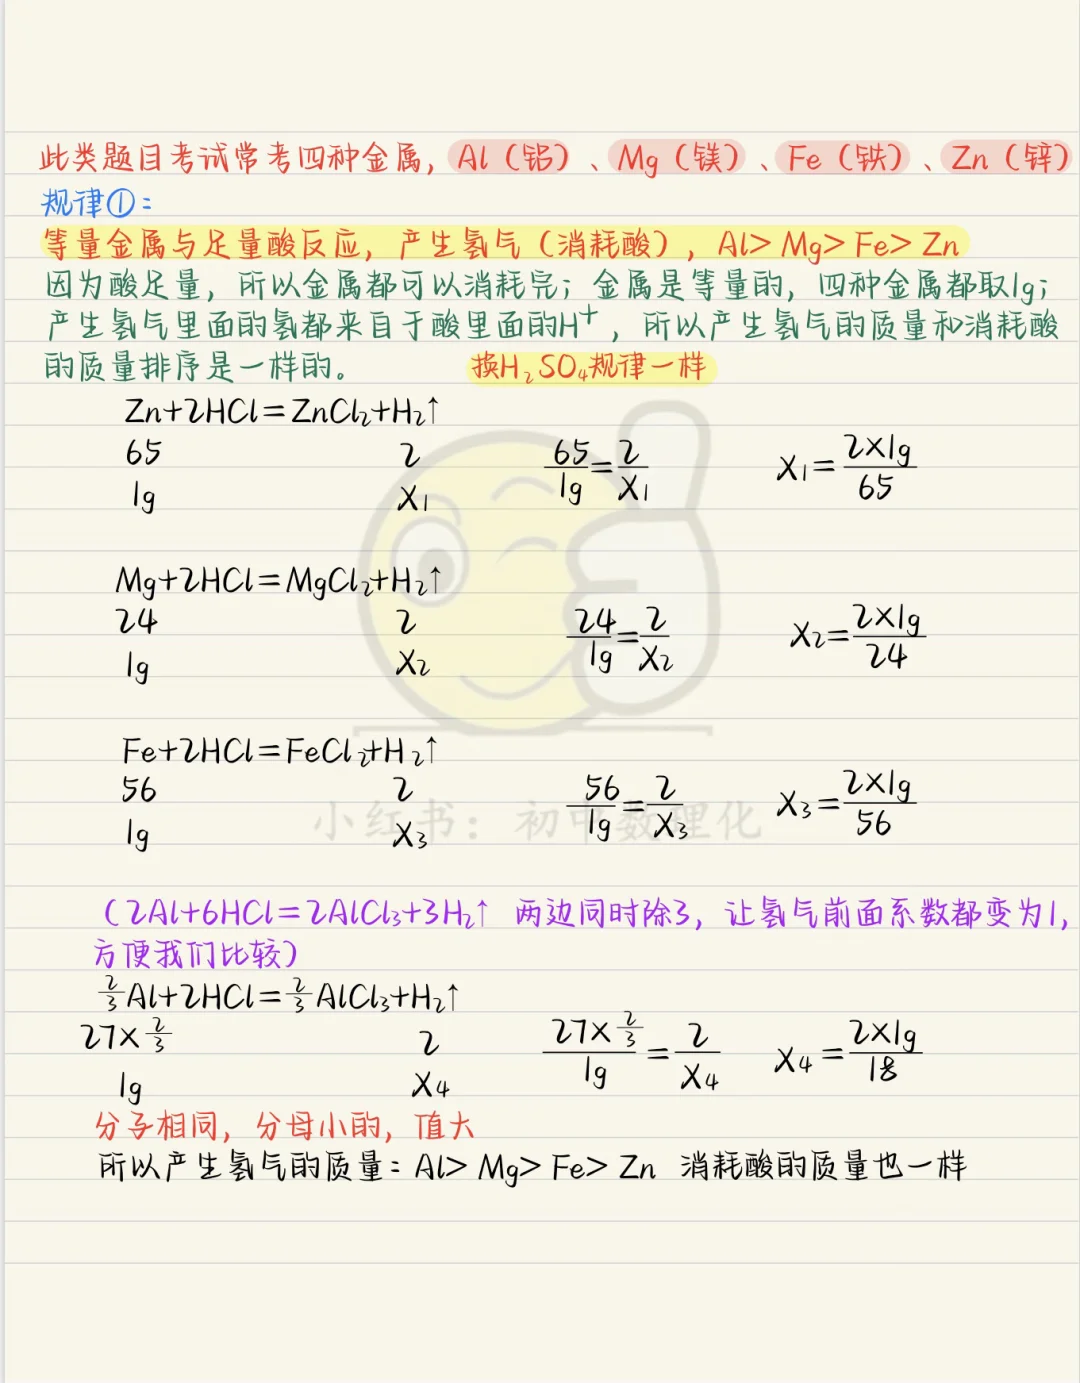 此类题目考试常考四种金属，Al（铝）、Mg（镁）、Fe（铁）、Zn（锌）
规律①：
等量金属与足量酸反应，产生氢气（消耗酸），Al＞Mg＞Fe＞Zn
因为酸足量，所以金属都可以消耗完；金属是等量的，四种金属都取1g；
产生氢气里面的氢都来自于酸里面的H⁺，所以产生氢气的质量和消耗酸
的质量排序是一样的。 换H₂SO₄规律一样
Zn+2HCl=ZnCl₂+H₂↑
65 2 65/1g=2/X₁ X₁=2×1g/65
1g X₁
Mg+2HCl=MgCl₂+H₂↑
24 2 24/1g=2/X₂ X₂=2×1g/24
1g X₂
Fe+2HCl=FeCl₂+H₂↑
56 2 56/1g=2/X₃ X₃=2×1g/56
1g X₃
小红书：初中数理化
（2Al+6HCl=2AlCl₃+3H₂↑ 两边同时除3，让氢气前面系数都变为1，
方便我们比较）
2/3Al+2HCl=2/3AlCl₃+H₂↑
27×2/3 2 27×2/3/1g=2/X₄ X₄=2×1g/18
1g X₄
分子相同，分母小的，值大
所以产生氢气的质量：Al＞Mg＞Fe＞Zn 消耗酸的质量也一样